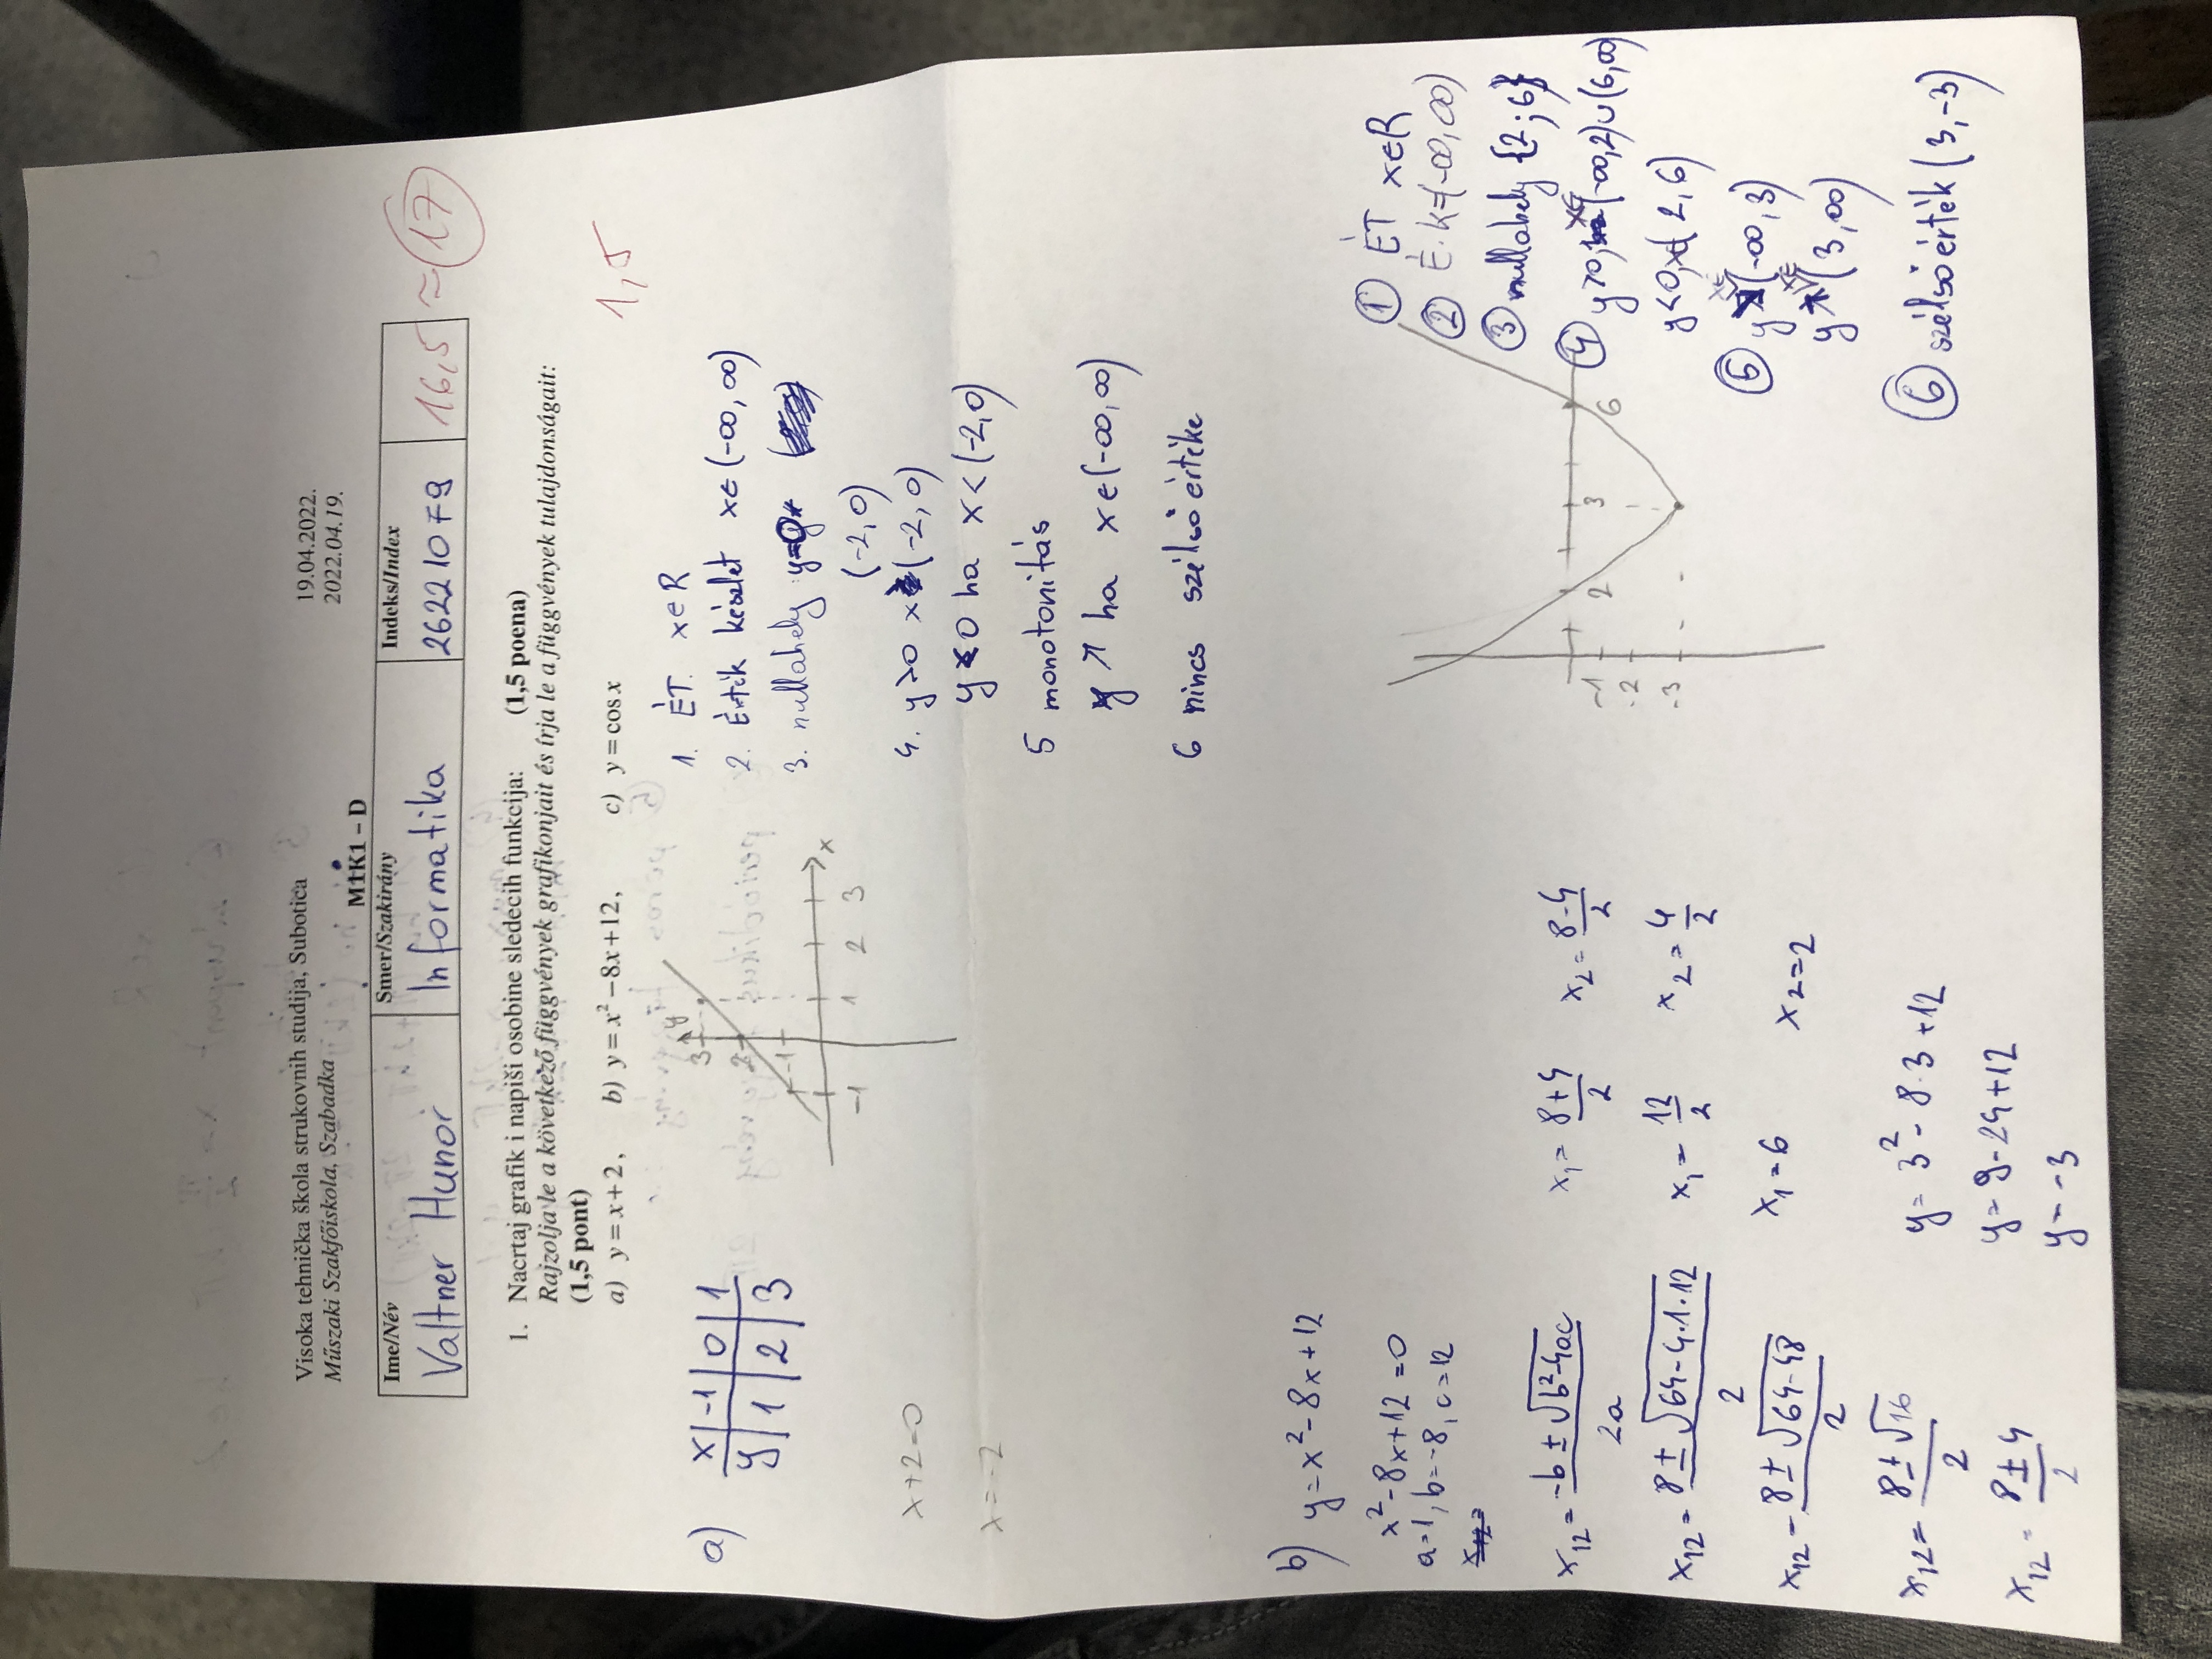 Visoka tehnička škola strukovnih studija, Subotica
Műszaki Szakfőiskola, Szabadka
19.04.2022.
2022.04.19.
M1K1 – D
Ime/Név
Valtner Hunor
Smer/Szakirány
Informatika
Indeks/Index
26221079
16,5 ≈ 17
1. Nacrtaj grafik i napiši osobine sledecih funkcija: (1,5 poena)
Rajzolja le a következő függvények grafikonjait és írja le a függvények tulajdonságait:
(1,5 pont)
a) y = x + 2, b) y = x² − 8x + 12, c) y = cos x
1,5
a)
x | -1 | 0 | 1
y | 1 | 2 | 3
y
3
2
1
x
-1 1 2 3
x+2=0
x=-2
1. ÉT. x∈R
2. Érték készlet x∈(-∞, ∞)
3. nullahely y=0
(-2, 0)
4. y>0 x (-2, 0)
y<0 ha x < (-2,0)
5 monotonitás
y ↗ ha x∈(-∞,∞)
6 nincs szélső értéke
b) y = x² - 8x + 12
x² - 8x + 12 = 0
a=1, b=-8, c=12
x₁₂ = (-b ± √(b²-4ac)) / 2a
x₁₂ = (8 ± √(64-4·1·12)) / 2
x₁₂ = (8 ± √(64-48)) / 2
x₁₂ = (8 ± √16) / 2
x₁₂ = (8 ± 4) / 2
x₁ = (8+4) / 2
x₁ = 12 / 2
x₁ = 6
x₂ = (8-4) / 2
x₂ = 4 / 2
x₂ = 2
y = 3² - 8·3 + 12
y = 9-24+12
y = -3
-1
-2
-3
2 3 6
① ÉT x∈R
② É.K=(-∞, ∞)
③ nullahely {2; 6}
④ y>0, x∈(-∞,2)∪(6,∞)
y<0, x∈(2, 6)
⑤ y ↘ x∈(-∞, 3)
y ↗ x∈(3, ∞)
⑥ szélső érték (3, -3)